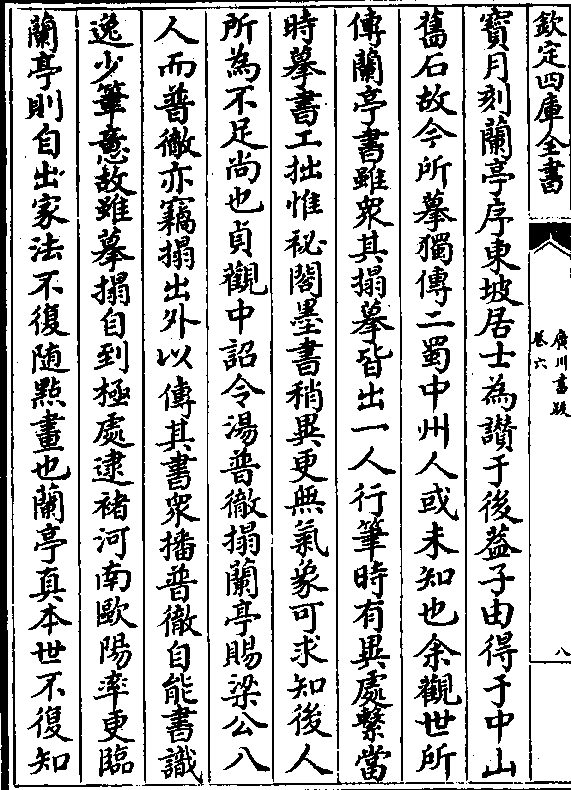 欽定四庫全書
廣川書跋
卷六
八
寶月刻蘭亭序東坡居士為讃于後葢子由得于中山
舊石故今所摹獨傳二蜀中州人或未知也余觀世所
傳蘭亭書雖衆其搨摹皆出一人行筆時有異處繫當
時摹書工拙惟秘閣墨書稍異更無氣象可求知後人
所為不足尚也貞觀中詔令湯普徹搨蘭亭賜梁公八
人而普徹亦竊搨出外以傳其書衆播普徹自能書識
逸少筆意故雖摹搨自到極處逮褚河南歐陽率更臨
蘭亭則自出家法不復随點畫也蘭亭真本世不復知